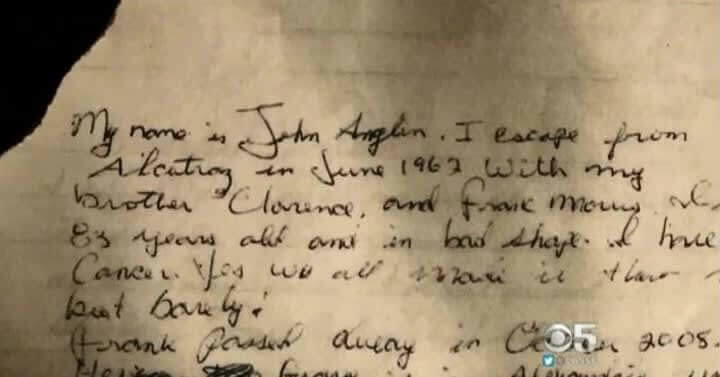 My name is John Anglin. I escape from
Alcatraz in June 1962 With my
brother Clarence, and Frank Morris. I
83 years old and in bad shape. I have
Cancer. Yes we all made it that
but barely!
Frank passed away in 2008.
CBS 5